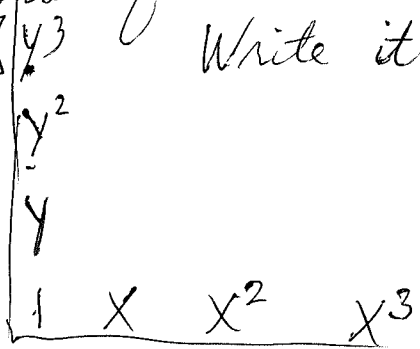 y³ Write it
y²
y
1 x x² x³